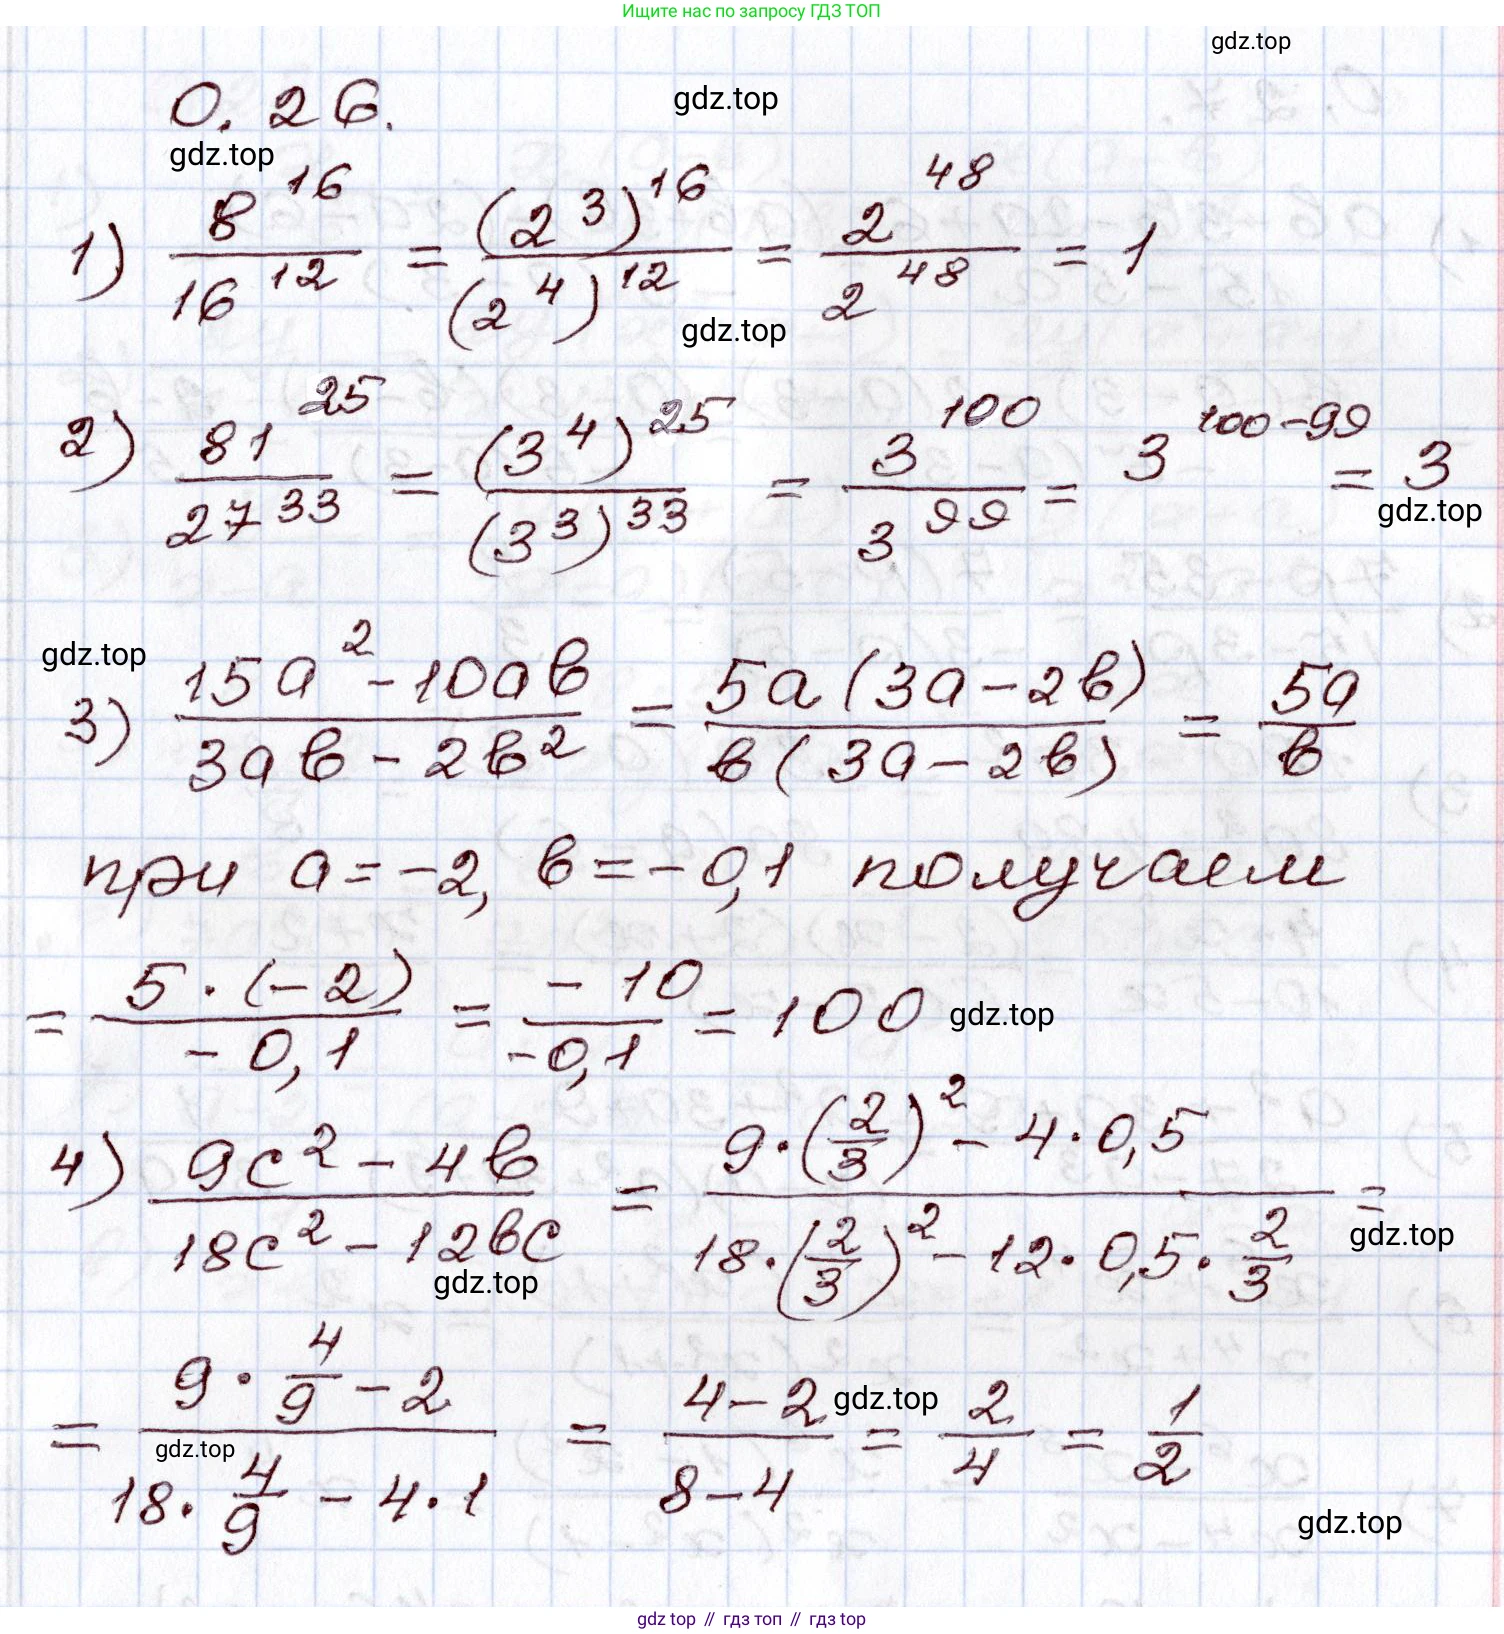 Ищите нас по запросу ГДЗ ТОП
gdz.top
0.26.
gdz.top
gdz.top
1) 8^16/16^12 = (2^3)^16/(2^4)^12 = 2^48/2^48 = 1
gdz.top
2) 81^25/27^33 = (3^4)^25/(3^3)^33 = 3^100/3^99 = 3^(100-99) = 3
gdz.top
gdz.top
3) (15a^2-10ab)/(3ab-2b^2) = 5a(3a-2b)/b(3a-2b) = 5a/b
при a=-2, b=-0,1 получаем
= 5·(-2)/-0,1 = -10/-0,1 = 100
gdz.top
4) (9c^2-4b)/(18c^2-12bc) = (9·(2/3)^2-4·0,5)/(18·(2/3)^2-12·0,5·2/3) =
gdz.top
gdz.top
= (9·4/9-2)/(18·4/9-4·1) = (4-2)/(8-4) = 2/4 = 1/2
gdz.top
gdz.top
gdz.top
gdz top // гдз топ // гдз top